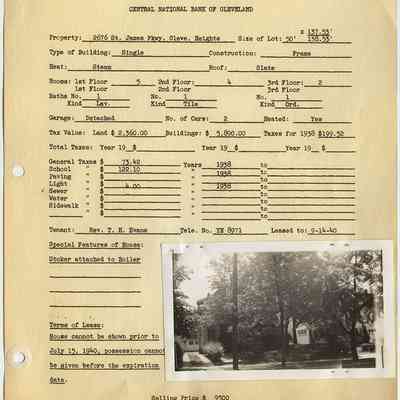 CENTRAL NATIONAL BANK OF CLEVELAND
x 137.53'
Property: 2676 St. James Pkwy. Cleve. Heights Size of Lot: 50' 138.53'
Type of Building: Single Construction: Frame
Heat: Steam Roof: Slate
Rooms: 1st Floor 5 2nd Floor: 4 3rd Floor: 2
1st Floor 2nd Floor 3rd Floor
Baths No. 1 No. 1 No. 1
Kind Lav. Kind Tile Kind Ord.
Garage: Detached No. of Cars: 2 Heated: Yes
Tax Value: Land $ 2,360.00 Buildings: $ 5,800.00 Taxes for 1938 $199.52
Total Taxes: Year 19 $ Year 19 $ Year 19 $
General Taxes $ 73.42 Years 1938 to
School " $ 122.10 " 1938 to
Paving " $ " to
Light " $ 4.00 " 1938 to
Sewer " $ " to
Water " $ " to
Sidewalk " $ " to
Tenant: Rev. T. H. Evans Tele. No. YE 8971 Leased to: 9-14-40
Special Features of House:
Stoker attached to Boiler
Terms of Lease:
House cannot be shown prior to
July 15, 1940, possession cannot
be given before the expiration
date.
Selling Price $ 9500